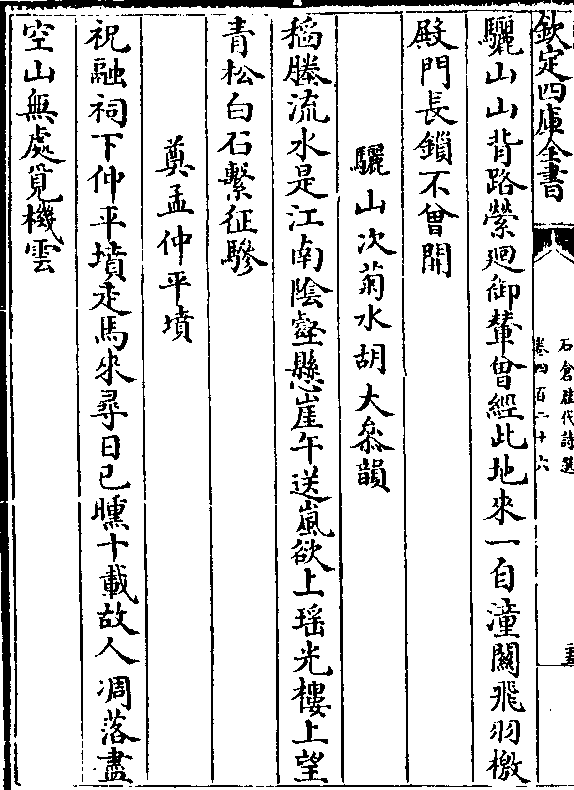 欽定四庫全書
石倉歷代詩選
卷四百二十六
驪山山背路縈迴御輦曾經此地來一自潼關飛羽檄
殿門長鎖不曾開
驪山次菊水胡大叅韻
稻塍流水是江南陰壑懸崖午送嵐欲上瑶光樓上望
青松白石繫征驂
奠孟仲平墳
祝融祠下仲平墳走馬來尋日已曛十載故人凋落盡
空山無處覓機雲